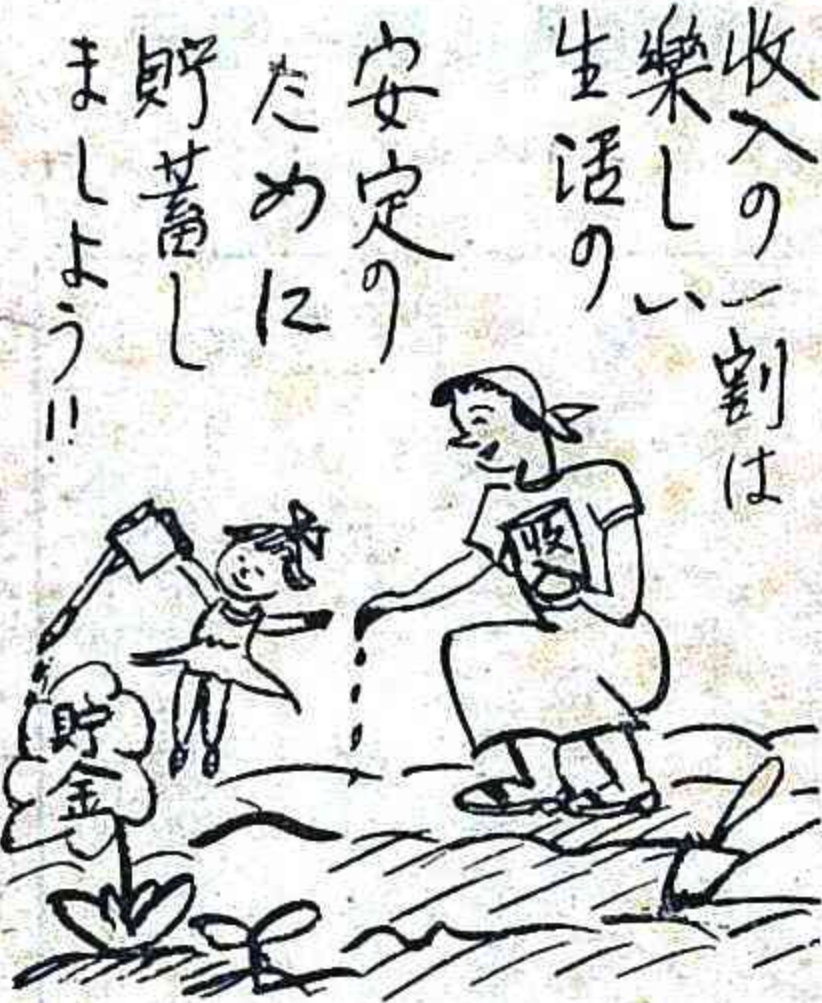 收入の一割は
樂しい
生活の
安定の
ために
貯蓄し
ましよう!!
收
貯金